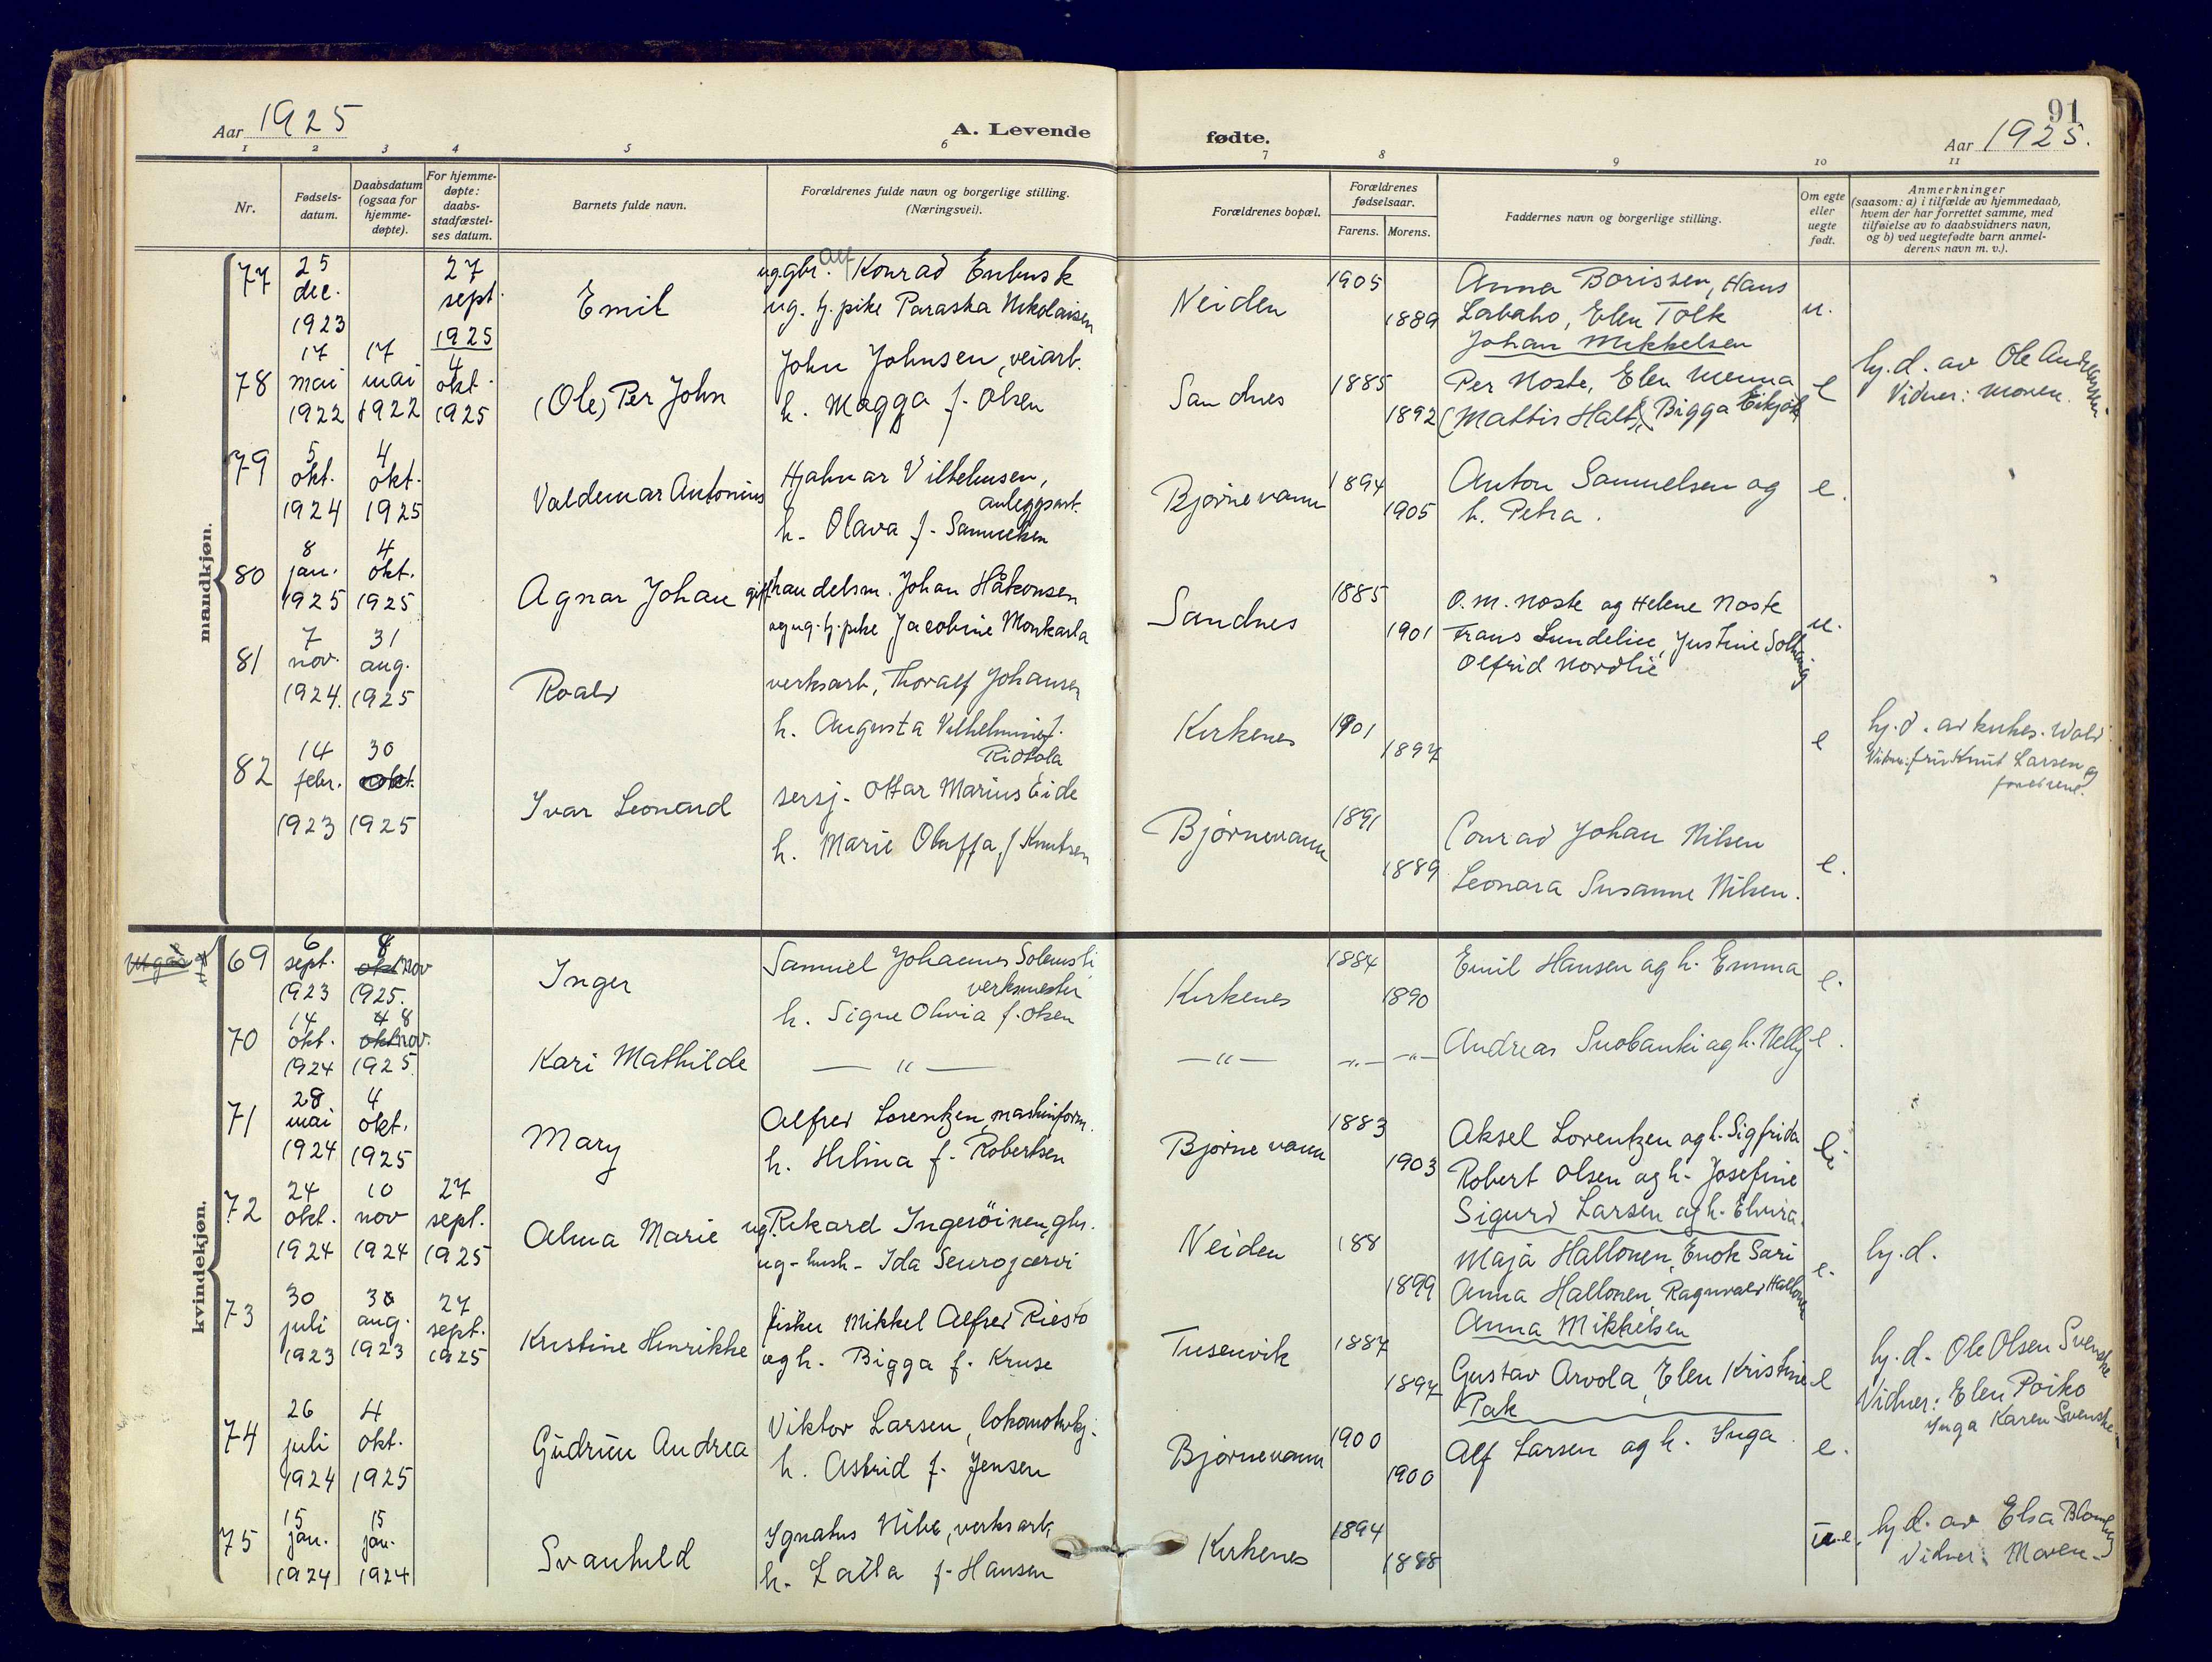 91
Aar 1925
A. Levende
fødte.
Aar 1925.
1 2 3 4 5 6 7 8 9 10 11
Nr.
Fødsels-
datum.
Daabsdatum
(ogsaa for
hjemme-
døpte).
For hjemme-
døpte:
daabs-
stadfæstel-
ses datum.
Barnets fulde navn.
Forældrenes fulde navn og borgerlige stilling.
(Næringsvei).
Forældrenes bopæl.
Forældrenes
fødselsaar.
Farens. Morens.
Faddernes navn og borgerlige stilling.
Om egte
eller
uegte
født.
Anmerkninger
(saasom: a) i tilfælde av hjemmedaab,
hvem der har forrettet samme, med
tilføielse av to daabsvidners navn,
og b) ved uegtefødte barn anmel-
derens navn m. v.).
mandkjøn.
77
25
dec.
1923
27
sept.
1925
Emil
ug. gbr. Alf Konrad Enbusk
ug. hj. pike Paraska Nikolaisen
Neiden
1905
1889
Anna Borissen, Hans
Labaho, Elen Tolk
Johan Mikkelsen
u.
78
17
mai
1922
17
mai
1922
4
okt.
1925
(Ole) Per John
John Johnsen, veiarb.
h. Magga f. Olsen
Sandnes
1885
1892
Per Noste, Elen Menna
(Mattis Halt), Bigga
e
hj.d. av Ole Andreassen
Vidner: moren.
79
5
okt.
1924
4
okt.
1925
Valdemar Antonius
Hjalmar Vilhelmsen,
anleggsarb.
h. Olava f. Samuelsen
Bjørnevann
1894
1905
Anton Samuelsen og
h. Petra.
e.
80
8
jan.
1925
4
okt.
1925
Agnar Johan
gift handelsm. Johan Håkonsen
og ug. hj. pike Jacobine Monkarla
Sandnes
1885
1901
O. M. Noste og Helene Noste
Frans Lundelin, Justine Solhaug
Olfrid Nordlie
u.
81
7
nov.
1924.
31
aug.
1925
Roald
verksarb, Thoralf Johansen
h. Augusta Vilhelmine f.
Ridtola
Kirkenes
1901
1897
e
hj.d. av Wald
Vidner: fru Knut Larsen og
foreldrene.
82
14
febr.
1923
30
okt.
1925
Ivar Leonard
sersj. Ottar Marius Eide
h. Marie Oluffa f. Knutsen
Bjørnevann
1891
1889
Conrad Johan Nilsen
Leonara Susanne Nilsen.
e.
kvindekjøn.
Utgår
69
6
sept.
1923
8
okt nov
1925.
Inger
Samuel Johannes Solemsli
verksmester
h. Signe Olivia f. Olsen
Kirkenes
1884
1890
Emil Hansen og h. Emma
e.
70
14
okt.
1924
4 8
okt nov.
1925.
Kari Mathilde
— " —
— " —
— " — — " —
Andreas Suobanki og h. Nelly
e.
71
28
mai
1924
4
okt.
1925
Mary
Alfred Lorentzen, maskinform.
h. Helma f. Robertsen
Bjørnevann
1883
1903
Aksel Lorentzen og h. Sigfrida
Robert Olsen og h. Josefine
Sigurd Larsen og h. Elvira.
e.
72
24
okt.
1924
10
nov
1924
27
sept.
1925
Alma Marie
ug. Rikard Ingeröinen, gbr.
ug. hush. Ida Seurojærvi
Neiden
188
1899
Maja Hallonen, Enok Sari
Anna Hallonen, Ragnvald Hallonen
Anna Mikkelsen
e.
hj.d.
73
30
juli
1923
30
aug.
1923
27
sept.
1925
Kristine Henrikke
fisker Mikkel Alfred Riesto
og h. Bigga f. Kruse
Tusenvik
1887
1897
Gustav Arvola, Elen Kristine
Pak
e
hj.d. Ole Olsen Svenske
Vidner: Elen Poiko
Inga Karen Svenske
74
26
juli
1924
4
okt.
1925
Gudrun Andrea
Viktor Larsen, lokomotivkj.
h. Astrid f. Jensen
Bjørnevann
1900
1900
Alf Larsen og h. Inga.
e.
75
15
jan.
1924
15
jan.
1924
Svanhild
Ignatus Nibe, verksarb.
h. Lalla f. Hansen
Kirkenes
1894
1888
u e.
hj.d. av Elsa
Vidner: Moren.